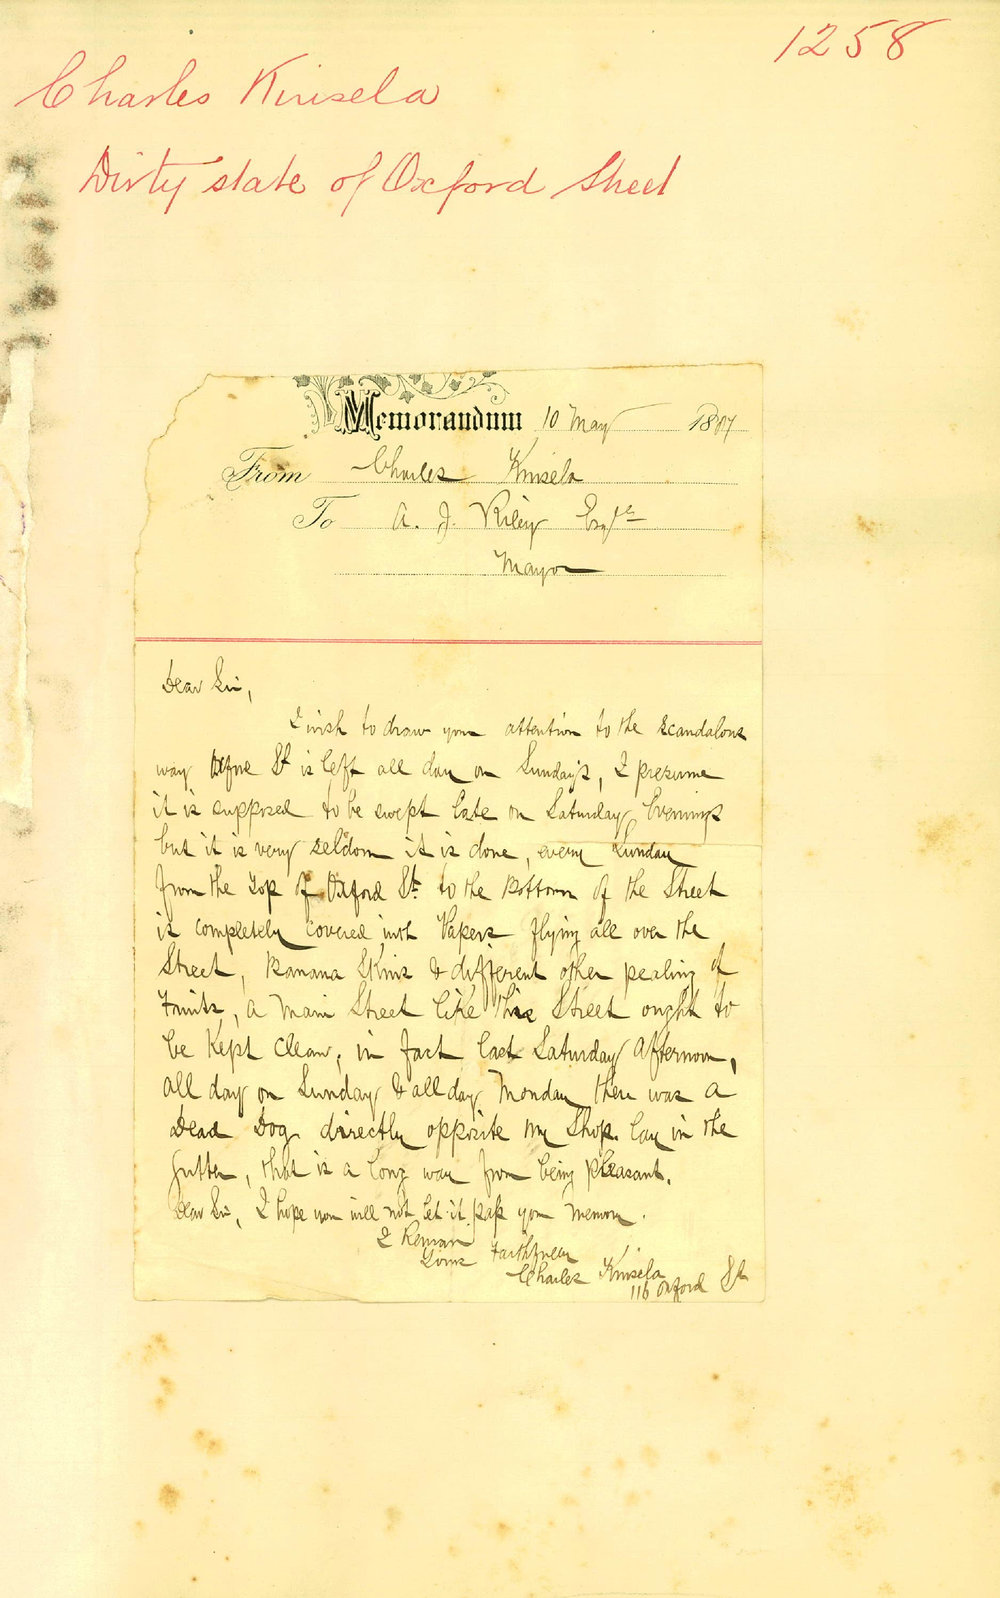 1258
Charles Kinsela
Dirty state of Oxford Street
Memorandum 10 May 1887
From Charles Kinsela
To A. J. Riley Esqre
Mayor
Dear Sir,
I wish to draw your attention to the scandalous
way Oxford St is left all day on Sundays, I presume
it is supposed to be swept late on Saturday Evenings
but it is very seldom it is done, every Sunday
from the Top of Oxford St. to the Bottom of the Street
is completely covered with Papers flying all over the
Street, Banana Skins & different other pealing of
Fruits, a Main Street like this Street ought to
be Kept Clean, in fact last Saturday afternoon,
all day on Sunday & all day Monday there was a
Dead Dog directly opposite my Shop. lay in the
gutter, that is a long way from being pleasant.
Dear Sir, I hope you will not let it pass your memory.
I Remain
Yours Faithfully
Charles Kinsela
116 Oxford St